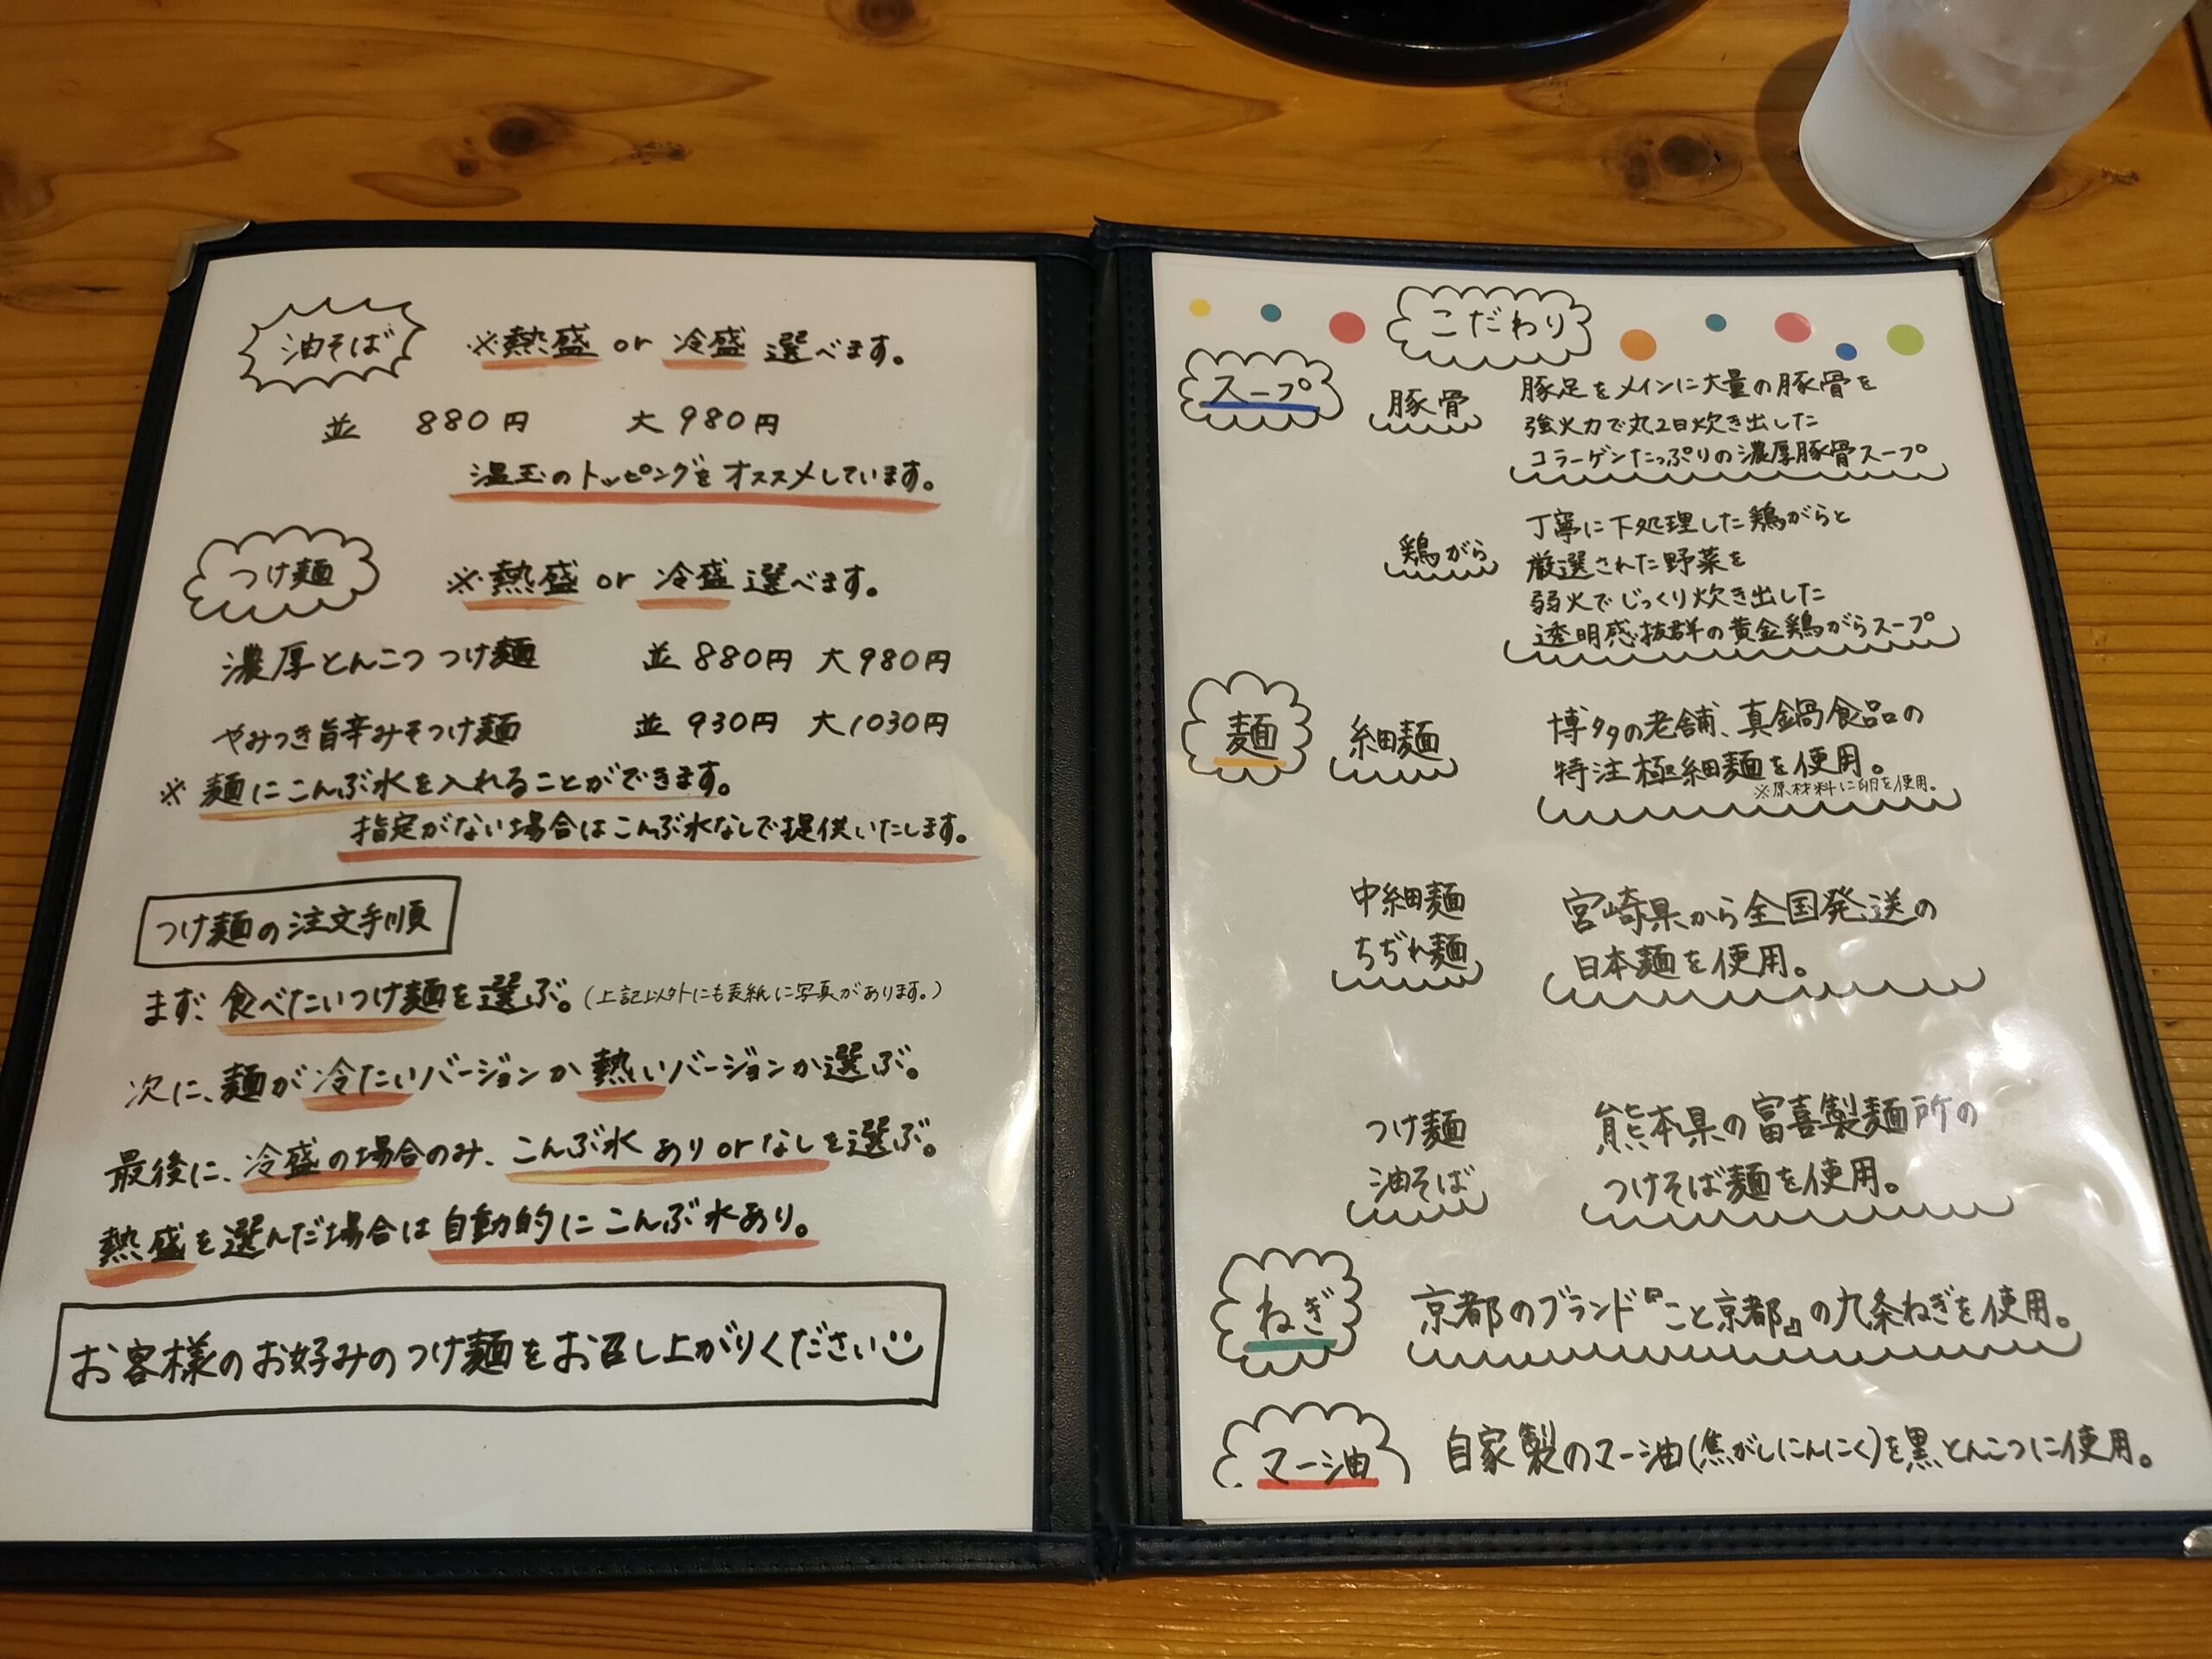 油そば ※熱盛 or 冷盛 選べます。
並 880円 大 980円
温玉のトッピングをオススメしています。
つけ麺 ※熱盛 or 冷盛 選べます。
濃厚とんこつつけ麺 並 880円 大 980円
やみつき旨辛みそつけ麺 並 930円 大 1030円
※ 麺にこんぶ水を入れることができます。
指定がない場合はこんぶ水なしで提供いたします。
つけ麺の注文手順
まず 食べたいつけ麺を選ぶ。(上記以外にも表紙に写真があります。)
次に、麺が冷たいバージョンか熱いバージョンか選ぶ。
最後に、冷盛の場合のみ、こんぶ水 あり or なしを選ぶ。
熱盛を選んだ場合は自動的にこんぶ水あり。
お客様のお好みのつけ麺をお召し上がりください
こだわり
スープ
豚骨
豚足をメインに大量の豚骨を
強火力で丸2日炊き出した
コラーゲンたっぷりの濃厚豚骨スープ
鶏がら
丁寧に下処理した鶏がらと
厳選された野菜を
弱火でじっくり炊き出した
透明感抜群の黄金鶏がらスープ
麺
細麺
博多の老舗、真鍋食品の
特注極細麺を使用。
※原材料に卵を使用。
中細麺
ちぢれ麺
宮崎県から全国発送の
日本麺を使用。
つけ麺
油そば
熊本県の富喜製麺所の
つけそば麺を使用。
ねぎ
京都のブランド『こと京都』の九条ねぎを使用。
マー油
自家製のマー油(焦がしにんにく)を黒とんこつに使用。